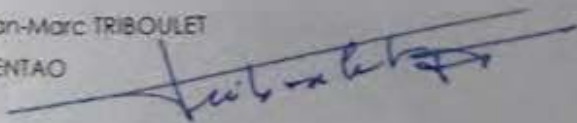 an-Marc TRIBOULET
ENTAO